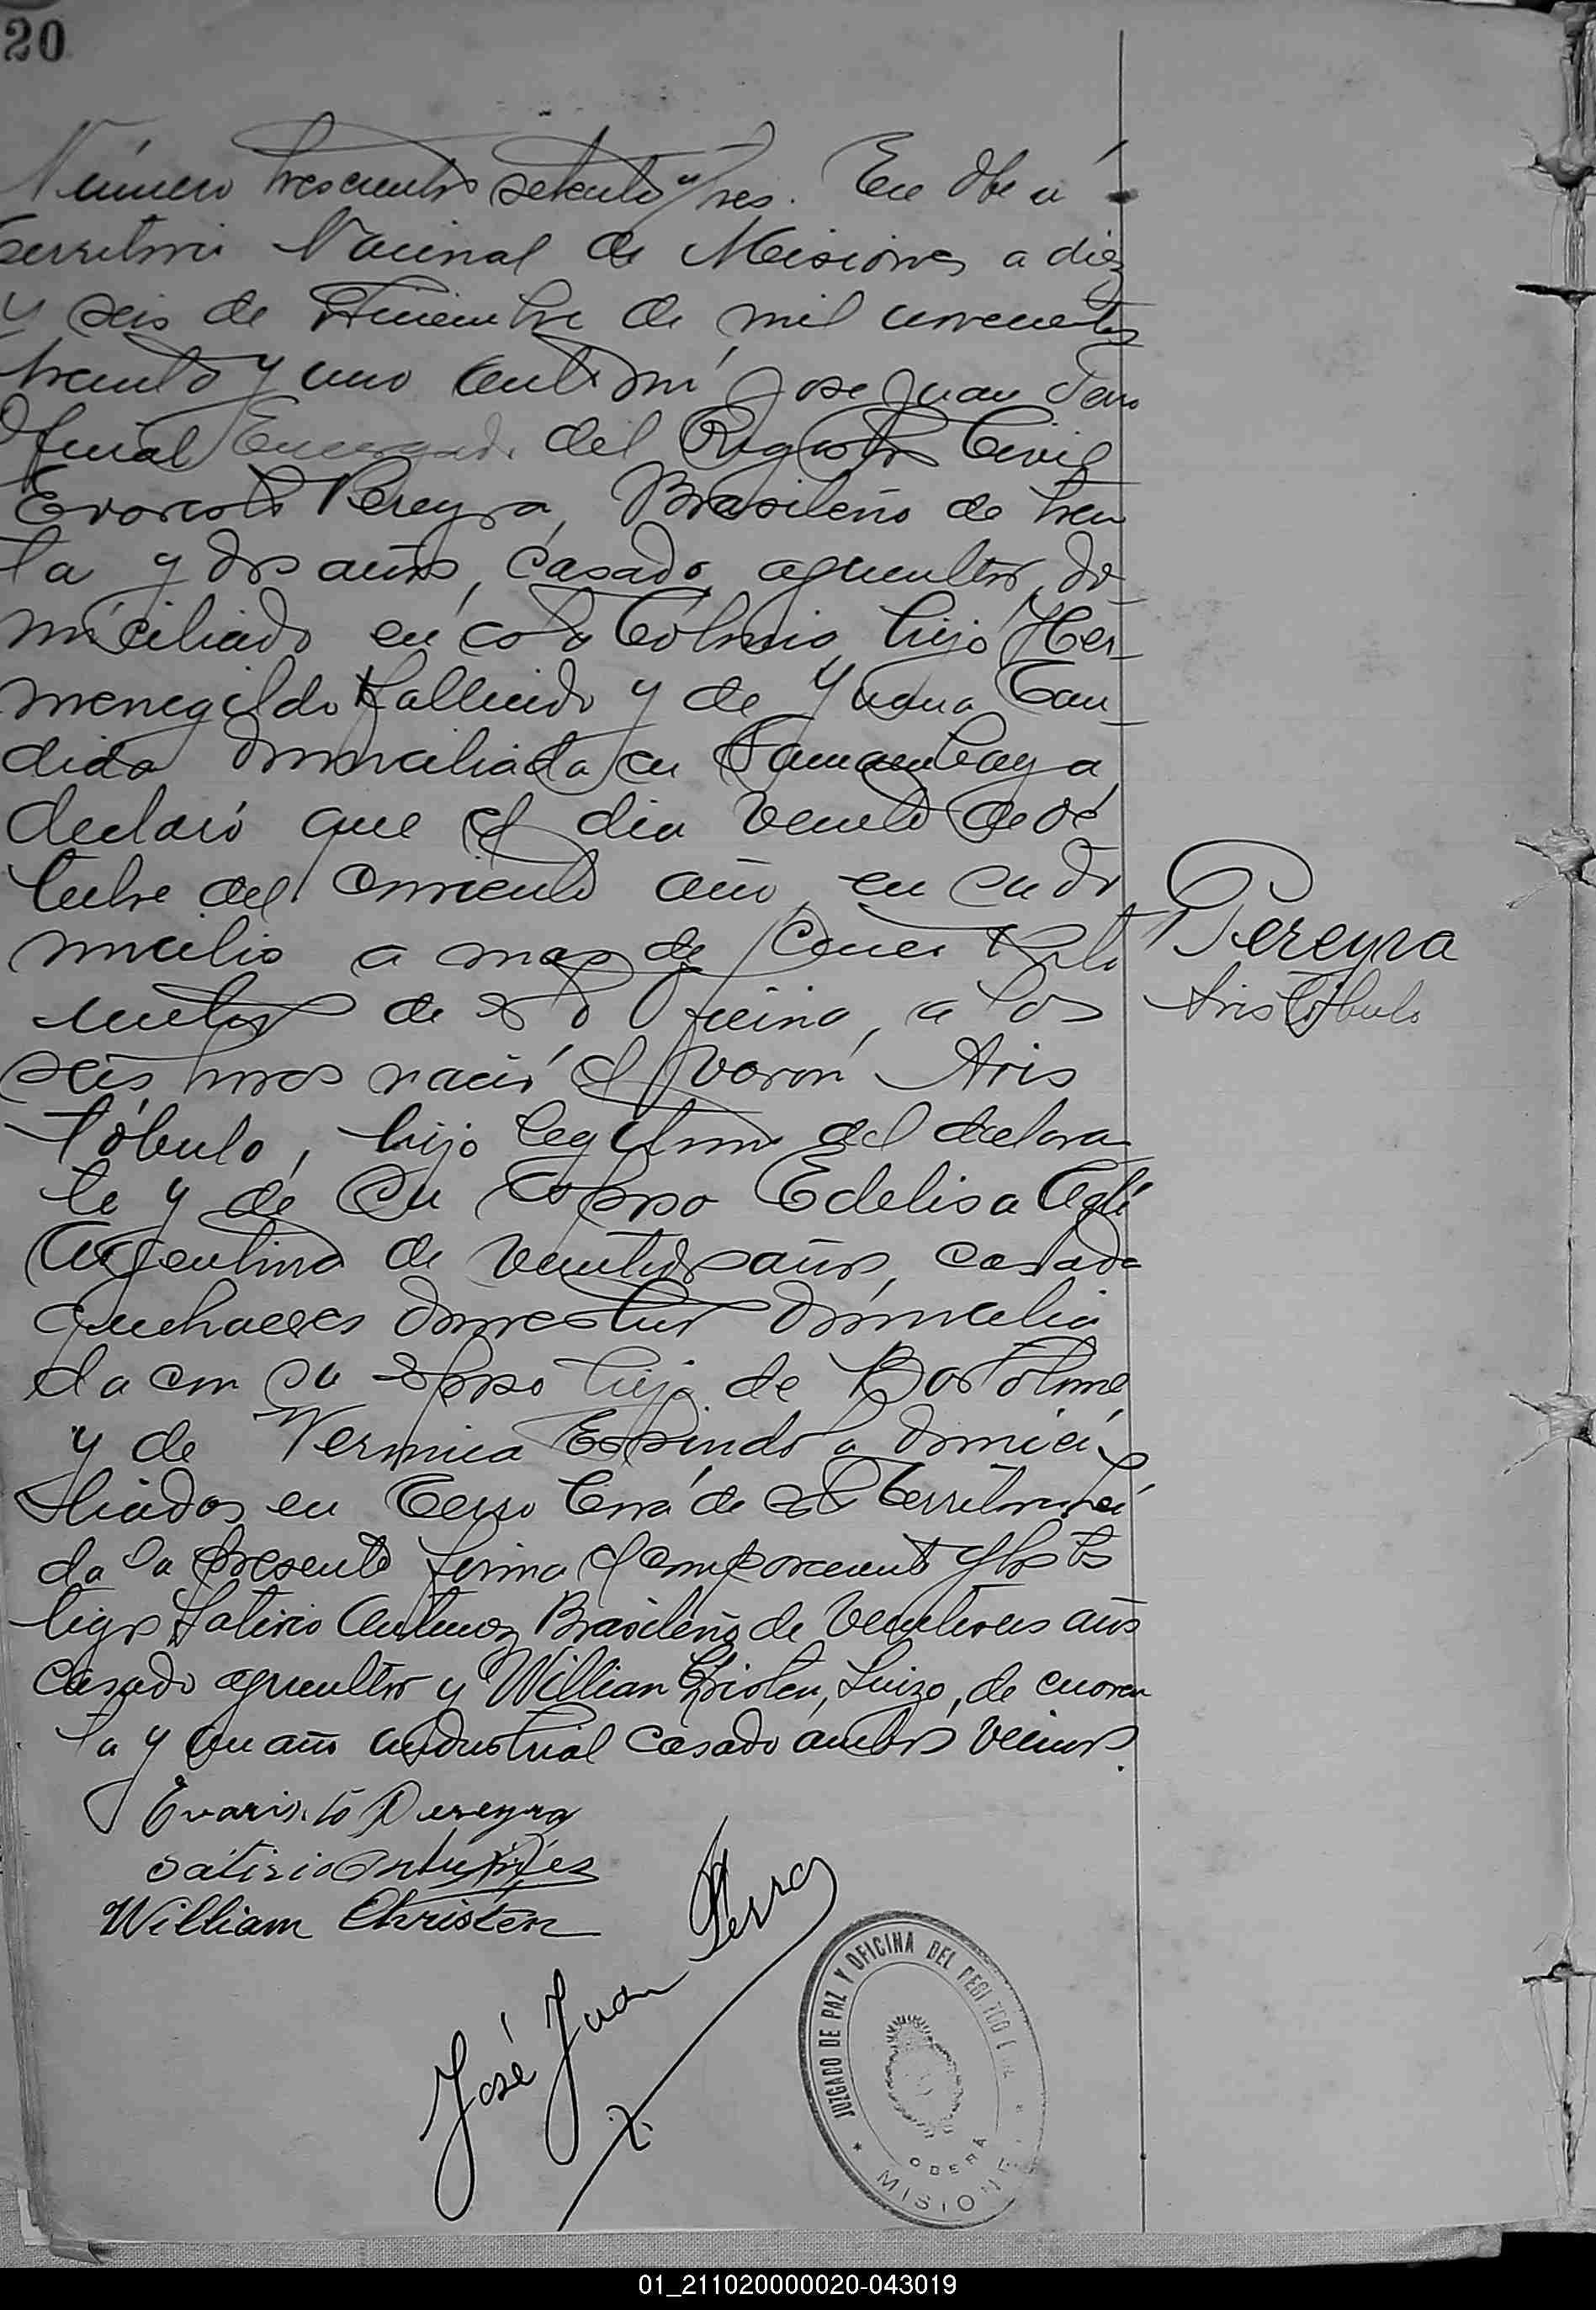 20
Número trescientos setenta y tres. En Oberá
Territorio Nacional de Misiones a diez
y seis de de mil novecientos
treinta y uno ante mí José Juan
Oficial Encargado del Registro Civil
Evaristo Pereyra, Brasileño de trein
ta y dos años, casado, agricultor, do
miciliado en esta Colonia, hijo Her-
menegildo fallecido y de Yuana Can-
dida domiciliada en
declaró que el día veinte de Oc
tubre del corriente año, en su do
micilio a mas de
metros de esta Oficina, a las
seis horas nació el varón Aris
tóbulo, hijo legítimo del declaran
te y de su esposa Edelisa
Argentina de veintidos años, casada
quehaceres domesticos domicilia
da con su esposo hija de Bartolomé
y de Veronica Espindola domici-
liados en Cerro Corá de este Territorio Leí
da la presente firma el compareciente y los tes
tigos Satirio Antunez Brasileño de veintitres años
casado agricultor y William Cristen, Suizo, de cuaren
ta y un año industrial casado ambos vecinos.
Pereyra
Aristóbulo
Evaristo Pereyra
Satirio Antunes
William Christen
José Juan
JUZGADO DE PAZ Y OFICINA DEL REGI
OBERÁ
MISIONES
01_211020000020-043019